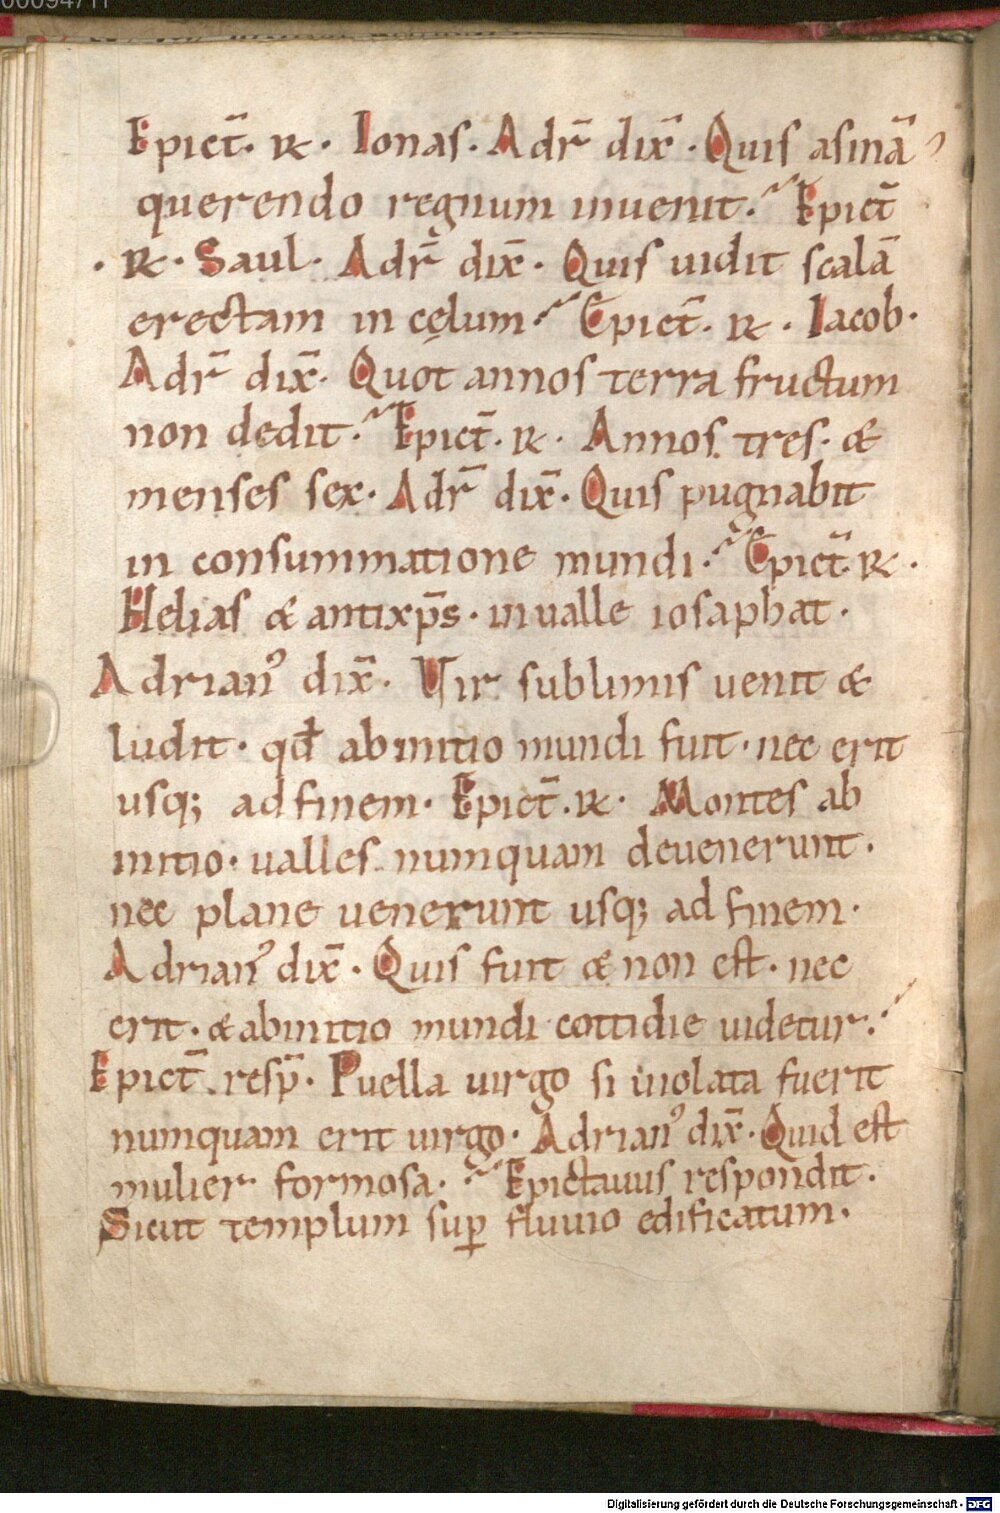 00094711
Epict̄. R̸. Ionas. Adr̄ dix̄. Quis asinā
querendo regnum inuenit. Epict̄
. R̸. Saul. Adr̄ dix̄. Quis uidit scalā
erectam in cęlum. Epict̄. R̸. Iacob.
Adr̄ dix̄. Quot annos terra fructum
non dedit. Epict̄. R̸. Annos tres. &
menses sex. Adr̄ dix̄. Quis pugnabit
in consummatione mundi. Epict̄. R̸.
Helias & antixp̄s. in ualle iosaphat.
Adrianꝰ dix̄. Vir sublimis uenit &
ludit. qd̄ ab initio mundi fuit. nec erit
usq; ad finem. Epict̄. R̸. Montes ab
initio. ualles numquam deuenerunt.
nec plane uenerunt usq; ad finem.
Adrianꝰ dix̄. Quis fuit & non est. nec
erit. & ab initio mundi cottidie uidetur.
Epict̄. resp̄. Puella uirgo si uiolata fuerit
numquam erit uirgo. Adrianꝰ dix̄. Quid est
mulier formosa. Epictauus respondit.
Sicut templum suꝑ fluuio edificatum.
Digitalisierung gefördert durch die Deutsche Forschungsgemeinschaft - DFG